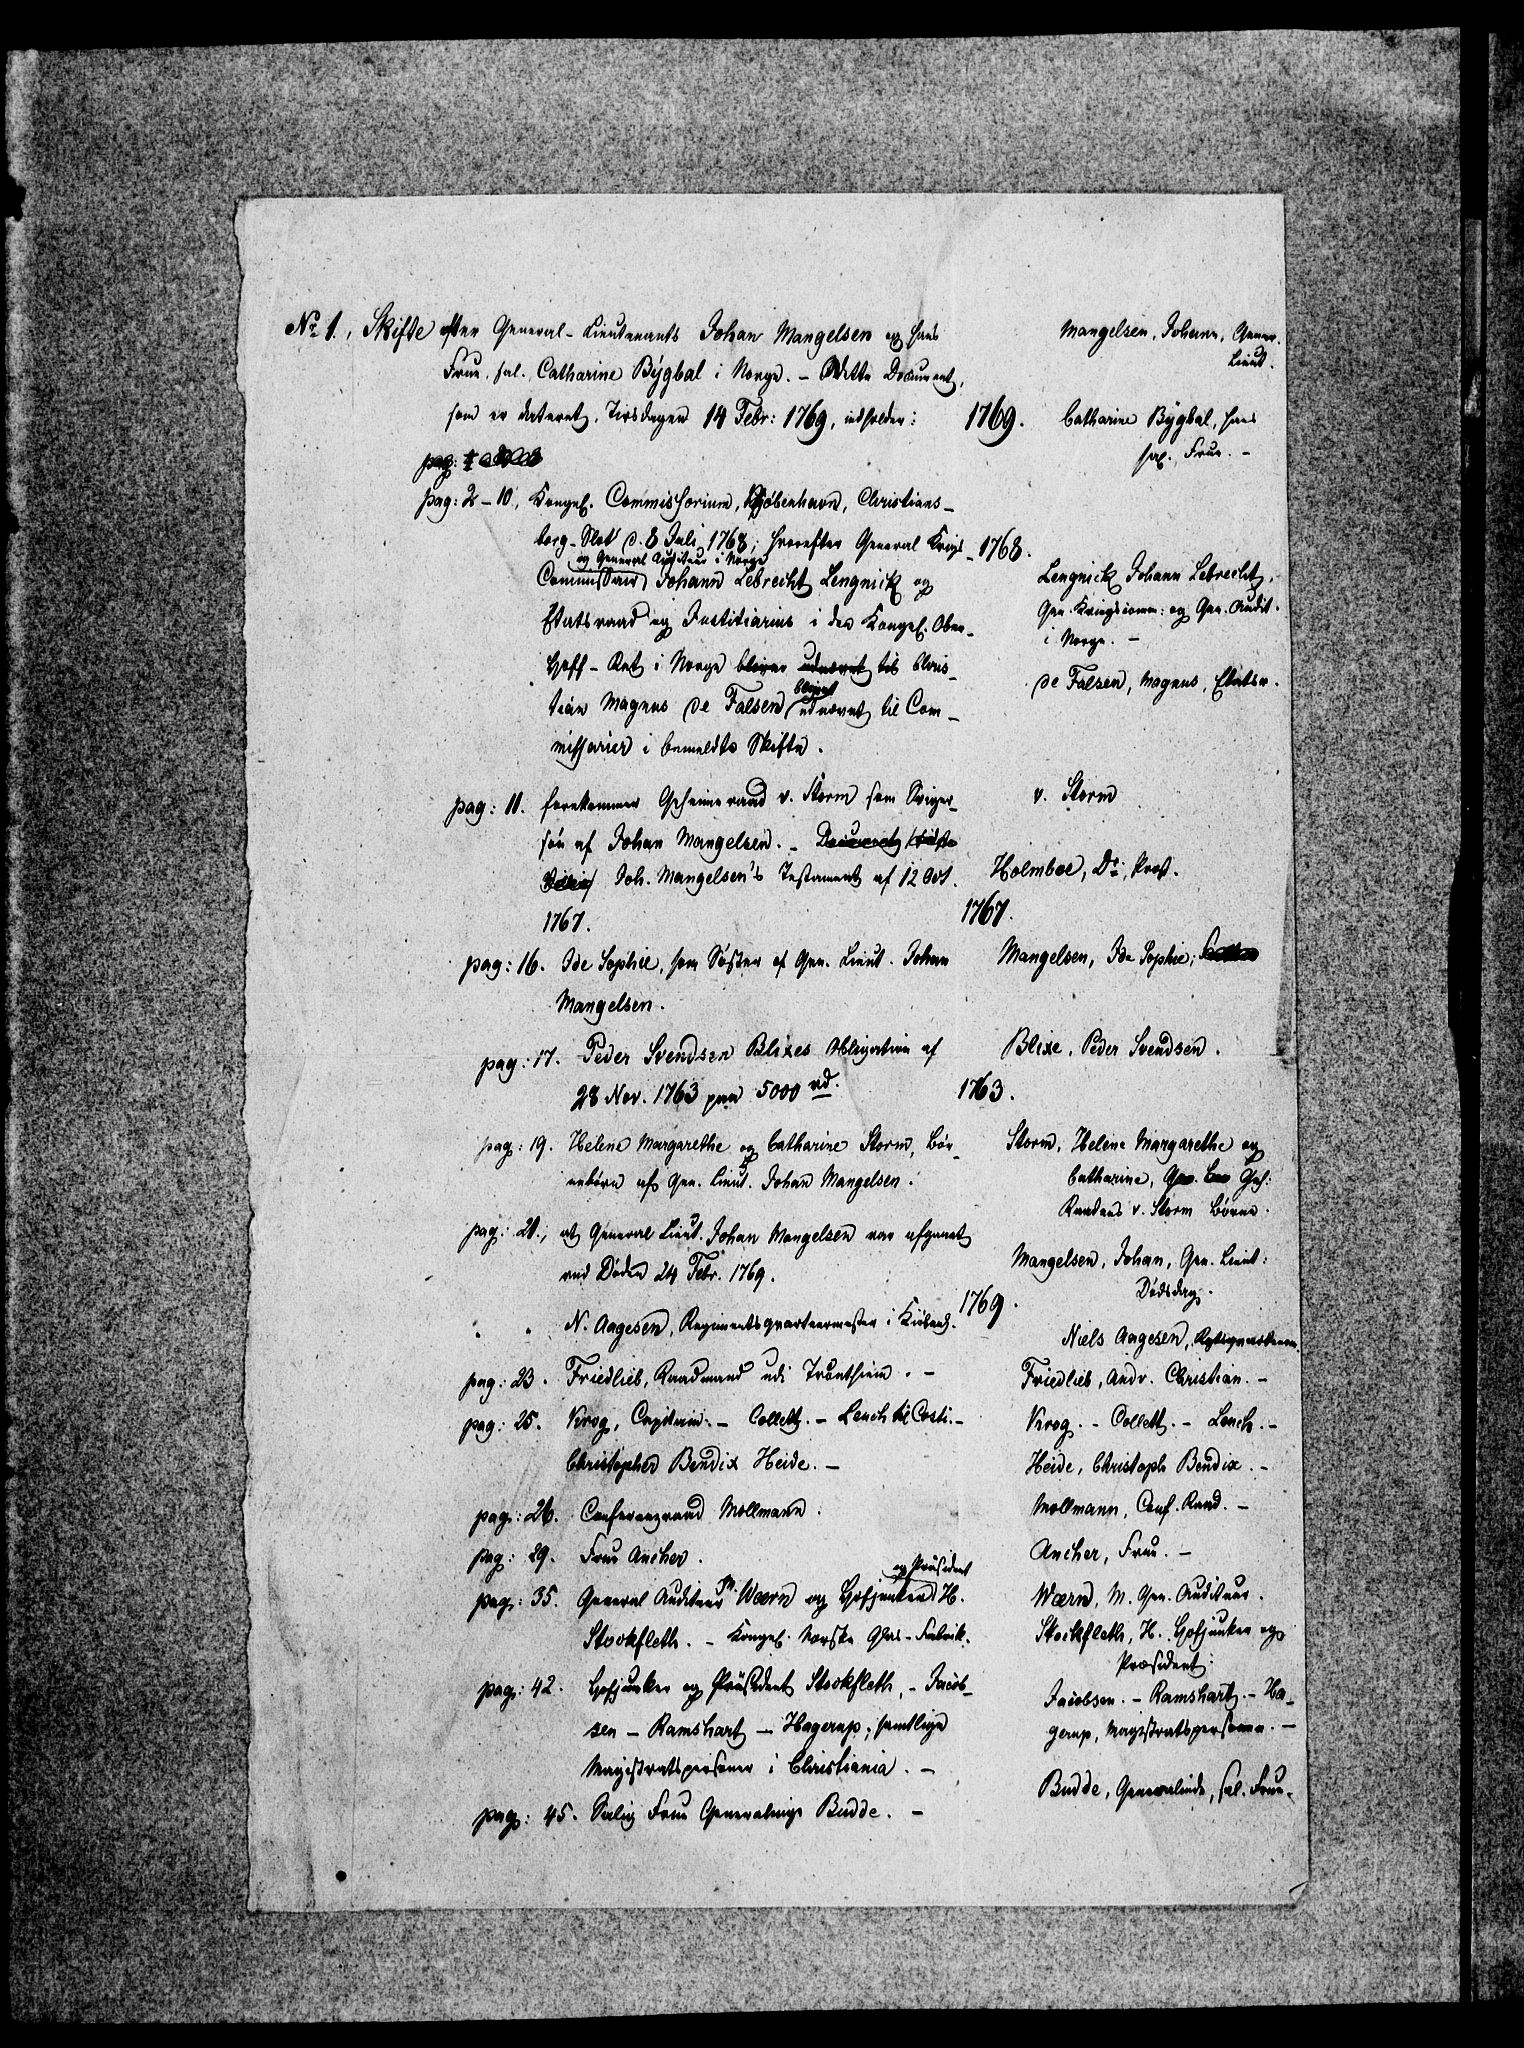 No 1., Skifte efter General-Lieutenants Johan Mangelsen og hans
Frue, sal. Catharine Bygbal i Norge. – Dette Document,
som er dateret, Tirsdagen 14 Febr: 1769, indholder:
pag:
pag: 2–10, Kongel. Commissorium, Kjöbenhavn, Christians-
borg-Slot d. 8 Juli 1768; hvorefter General Krigs-
og General Auditeur i Norge
Commissair Johann Lebrecht Lengnick og
Etatsraad og Justitiarius i det Kongel. Ober-
Hoff-Ret i Norge bliver udnævnt til Chris-
tian Magnus de Falsen blevet udnævnt til Com-
missarier i bemeldte Skifte.
pag: 11. forekommer Geheimeraad v. Storm som Sviger-
søn af Johan Mangelsen. –
Joh. Mangelsen's Testament af 12 Oct.
1767.
pag: 16. Ide Sophie, som Søster af Gen. Lieut. Johan
Mangelsen.
pag: 17. Peder Svendsen Blixes Obligation af
28 Nov. 1763 paa 5000 rd.
pag: 19. Helene Margarethe og Catharine Storm, Bør-
nebørn af Gen. Lieut. Johan Mangelsen.
pag: 21., at General Lieut. Johan Mangelsen var afgaaet
ved Døden 24 Febr. 1769.
" " N. Aagesen, Regimentsqvarteermester i Kiöbenh.
pag: 23. Friedlieb, Raadmand udi Trontheim. –
pag: 25. Krog, Capitain. – Collett. – Leuch til Costi. –
Christopher Bendix Heide. –
pag: 26. Conferenzraad Mollmann.
pag: 29. Frue Ancher.
pag: 35. General Auditeur M. Wærn og Hofjunker og Præsident H.
Stockfleth. – Kongel. Norske Glas-Fabrik.
pag: 42. Hofjunker og Præsident Stockfleth, – Jacob-
sen – Ramshart – Hagerup; samtlige
Magistratspersoner i Christiania. –
pag: 45. Salig Frue Generalinge Budde. –
1769.
1768.
1767.
1763.
1769.
Mangelsen, Johann, Gener.
Lieut.
Catharine Bygbal, hans
sal. Frue. –
Lengnick Johann Lebrecht,
Gen. Kriegscomm: og Gen. Audit.
i Norge. –
de Falsen, Magnus, Etatsr.
v. Storm
Holmboe, Dr., Prost.
Mangelsen, Ide Sophie;
Blixe, Peder Svendsen.
Storm, Helene Margarethe og
Catharine, Geh:
Raadens v. Storm Børn.
Mangelsen, Johan, Gen. Lieut:
Dødsdag.
Niels Aagesen,
Friedlieb, Andr. Christian. –
Krog. – Collett. – Leuch. –
Heide, Christoph Bendix. –
Mollmann, Conf. Raad. –
Ancher, Frue. –
Wærn, M. Gen. Auditeur.
Stockfleth, H. Hofjunker og
Præsident:
Jacobsen. – Ramshart. – Ha-
gerup, Magistratspersoner. –
Budde, Generalinde, sal. Frue.